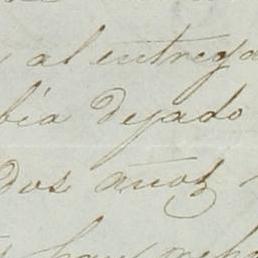 al entrega
bía dejado
dos años